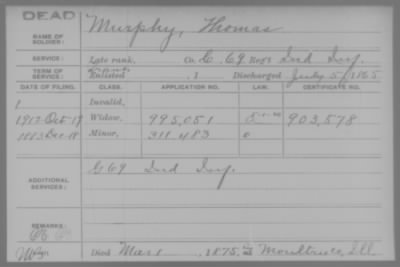 DEAD
NAME OF SOLDIER: Murphy, Thomas
SERVICE: Late rank, Co. G, 69 Reg't Ind Inf.
TERM OF SERVICE: Enlisted , 1 Discharged July 5, 1865
DATE OF FILING. CLASS. APPLICATION NO. LAW. CERTIFICATE NO.
1 Invalid,
1912 Oct-19 Widow, 995,051 903,578
1883 Dec-18 Minor, 311,483 0
ADDITIONAL SERVICES: G 69 Ind Inf.
REMARKS:
Died Mar , 1875, at Moultrie Co, Ill.